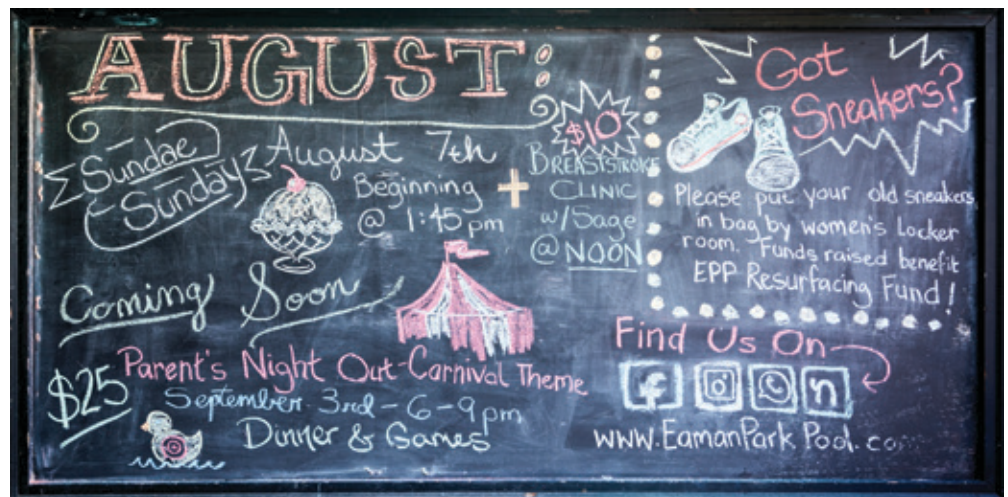 AUGUST:
Sundae
Sunday
August 7th
Beginning
@ 1:45 pm
+
$10
BREASTSTROKE
CLINIC
w/Sage
@ NOON
Coming Soon
$25
Parent's Night Out-Carnival Theme
September 3rd - 6-9pm
Dinner & Games
Got
Sneakers?
Please put your old sneakers
in bag by women's Locker
room. Funds raised benefit
EPP Resurfacing Fund!
Find Us On
f
n
www.EamanParkPool.com